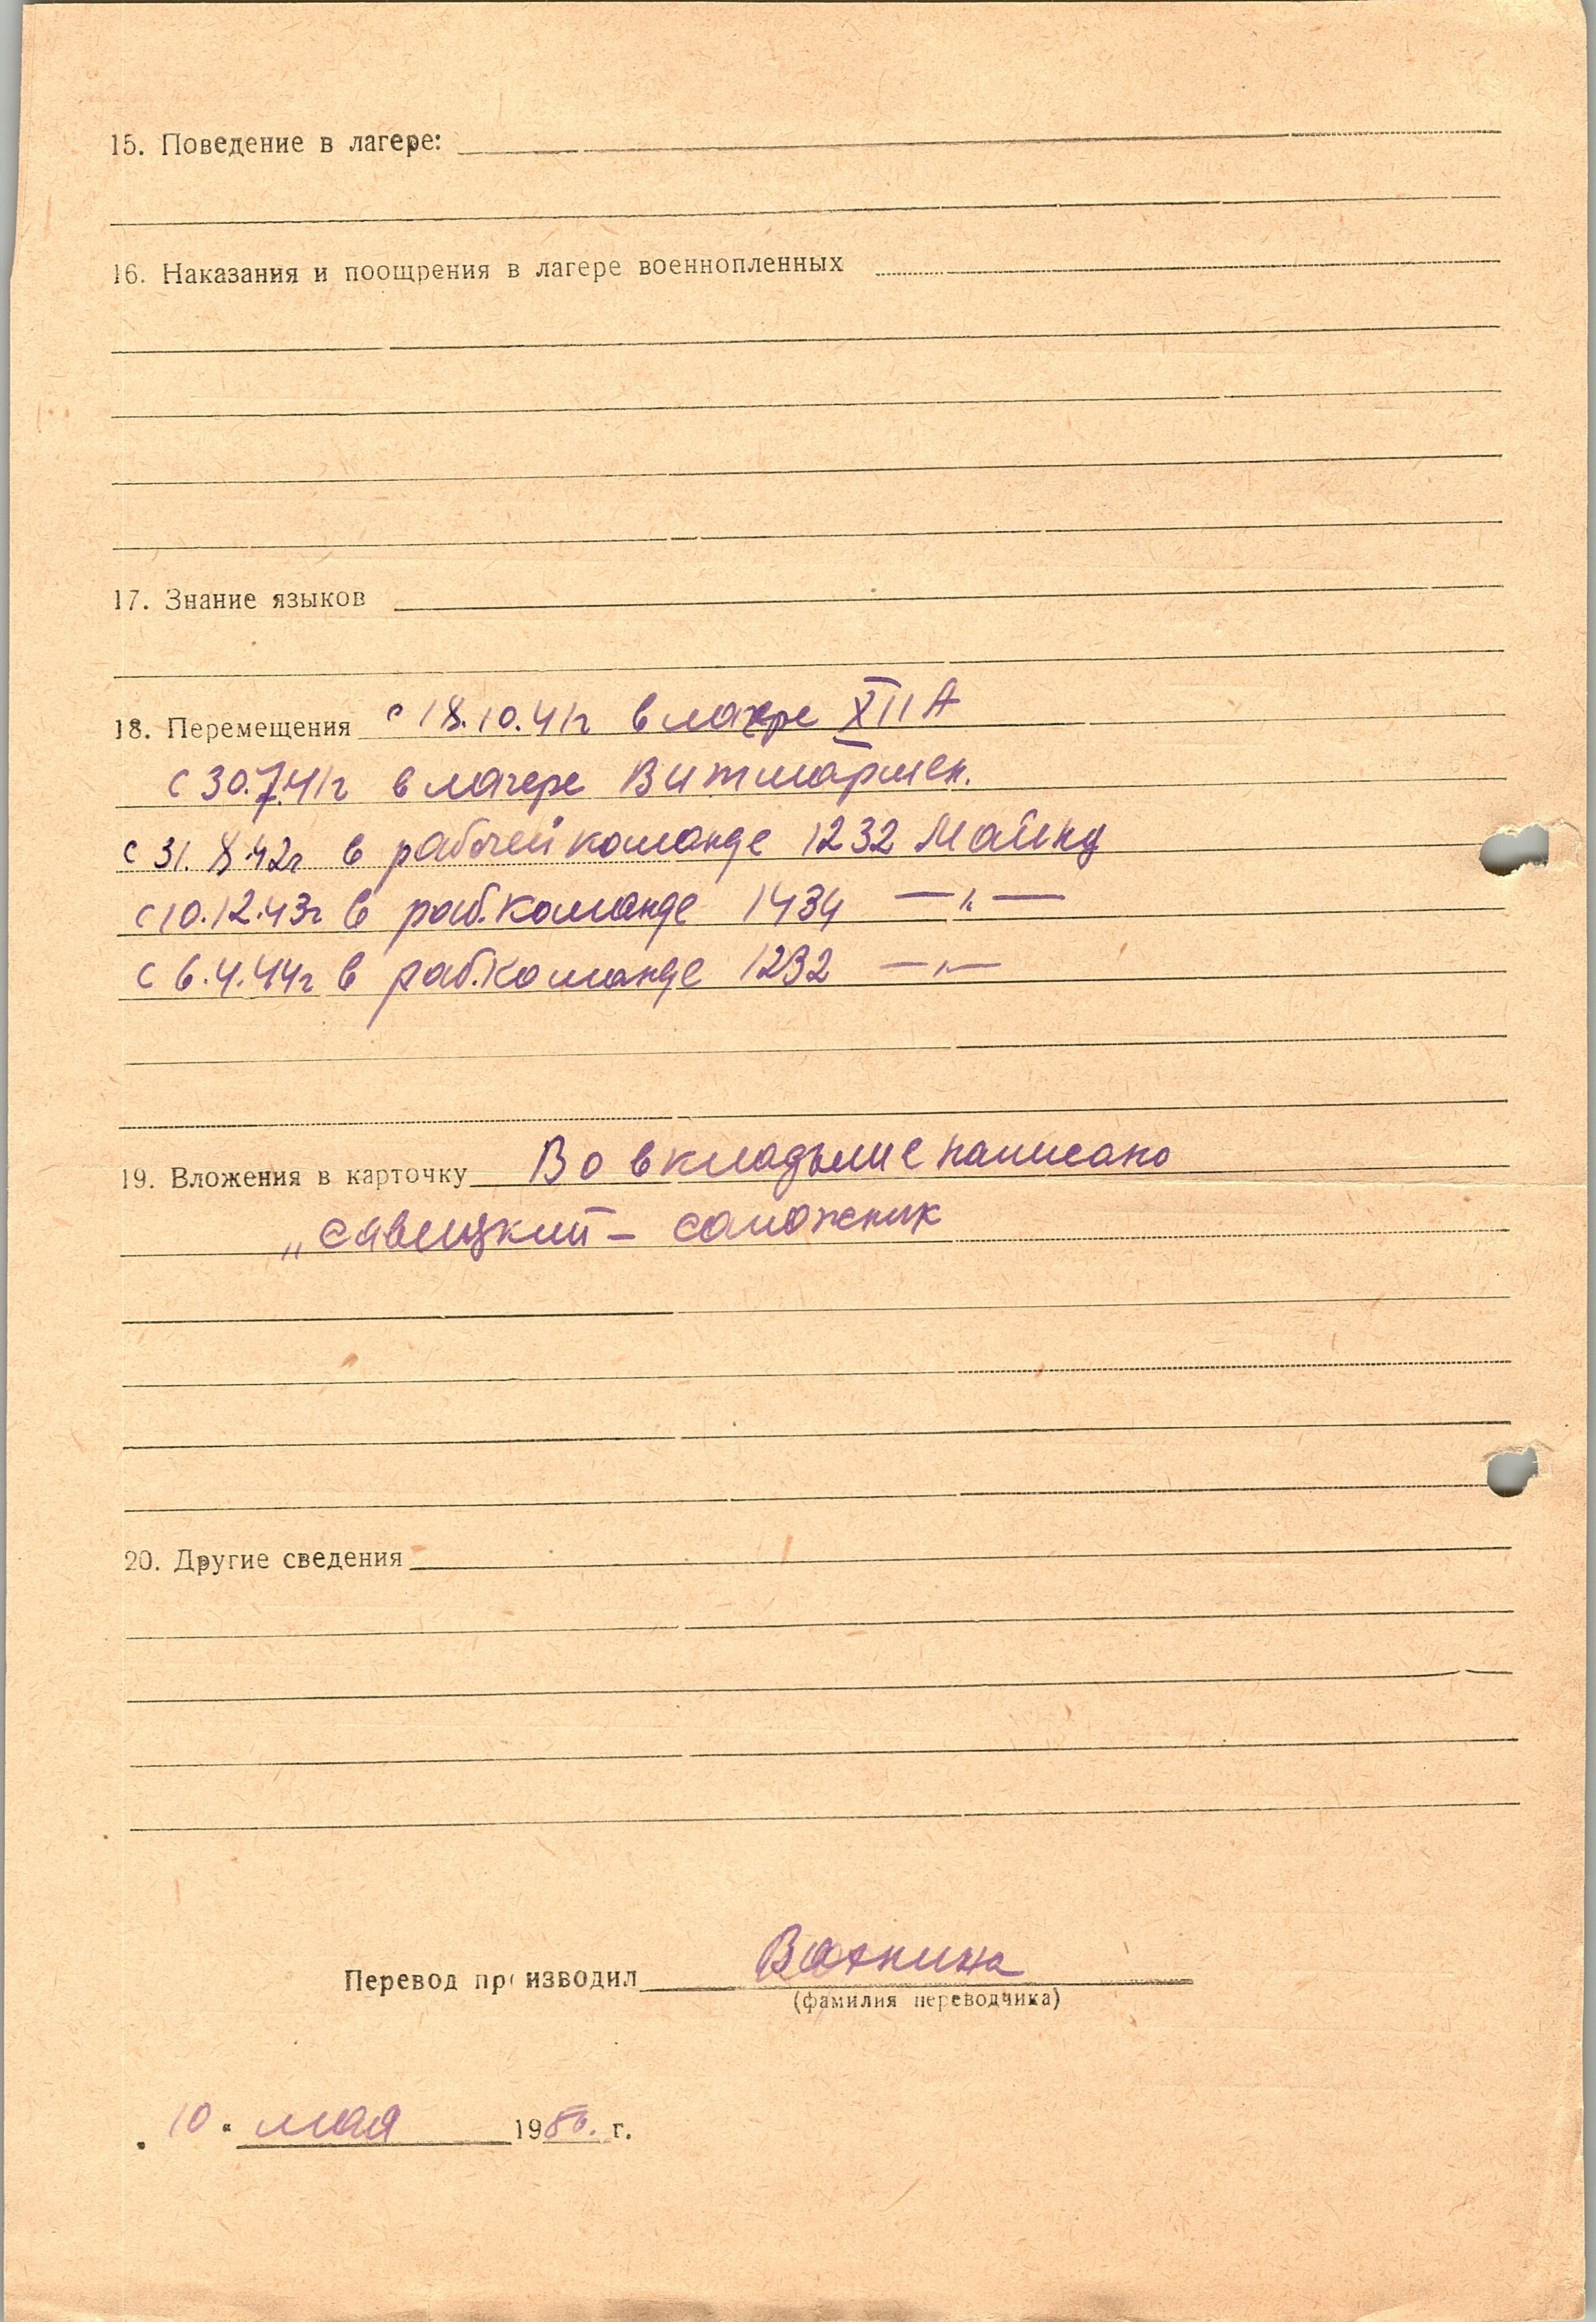 15. Поведение в лагере:
16. Наказания и поощрения в лагере военнопленных
17. Знание языков
18. Перемещения с 18.10.41г в лагере XII А
с 30.7.41г в лагере Витмармен.
с 31.8.42г в рабочей команде 1232 Майнц
с 10.12.43г в раб.команде 1434 —"—
с 6.4.44г в раб.команде 1232 —"—
19. Вложения в карточку Во вкладыше написано
„Савицкий – сапожник
20. Другие сведения
Перевод производил
(фамилия переводчика)
„ 10 " мая 1950. г.